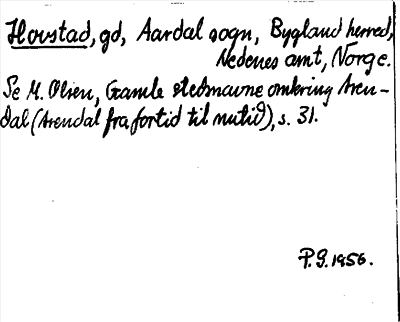 Hovstad, gd, Aardal sogn, Bygland herred,
Nedenes amt, Norge.
Se M. Olsen, Gamle stednavne omkring Aren-
dal (Arendal fra fortid til nutid), s. 31.
P.G. 1956.